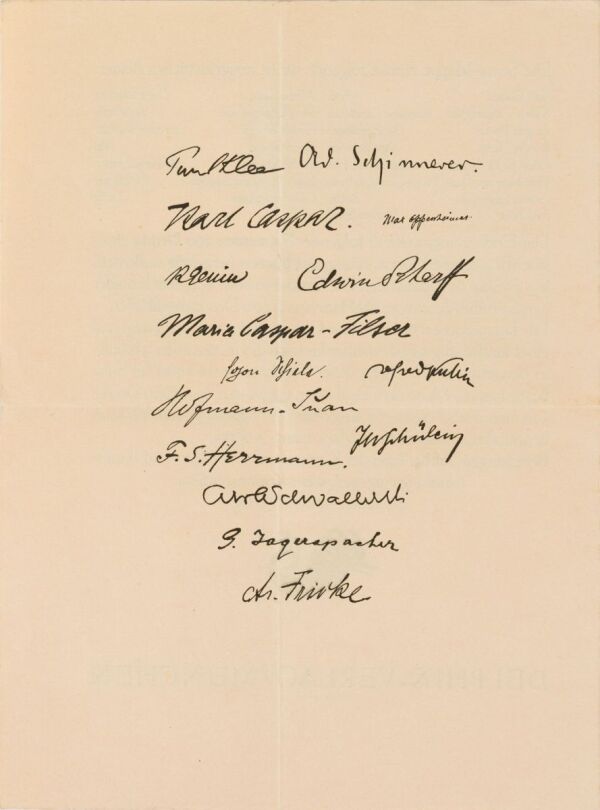 Paul Klee Ad. Schinnerer.
Karl Caspar. Max Oppenheimer.
R Genin Edwin Scharff
Maria Caspar-Filser
Egon Schiele. Alfred Kubin
Hofmann-Juan
F. S. Herrmann. JWSchülein
Schwalbach
G. Jagerspacher
A. Fricke